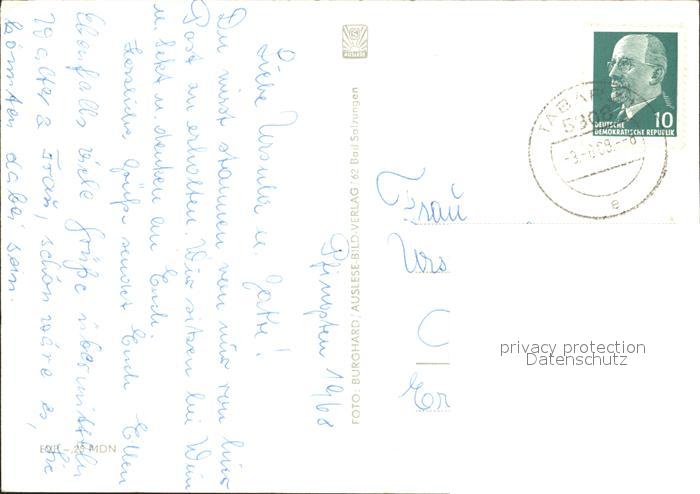 Pfingsten 1968
Liebe Ursula u. Gatte!
Du wirst staunen von mir von hier
Post zu erhalten. Wir sitzen bei Wein
u. Sekt u. denken an Euch.
Grüße sendet Euch Ellen
Ebenfalls viele Grüße übermitteln
Walter & Frau, schön wäre es, Sie
könnten dabei sein.
EVP -,20 MDN
AUSLESE
FOTO: BURGHARD / AUSLESE-BILD-VERLAG / 62 Bad Salzungen
DEUTSCHE
DEMOKRATISCHE REPUBLIK
10
e
Frau
Urs
privacy protection
Datenschutz